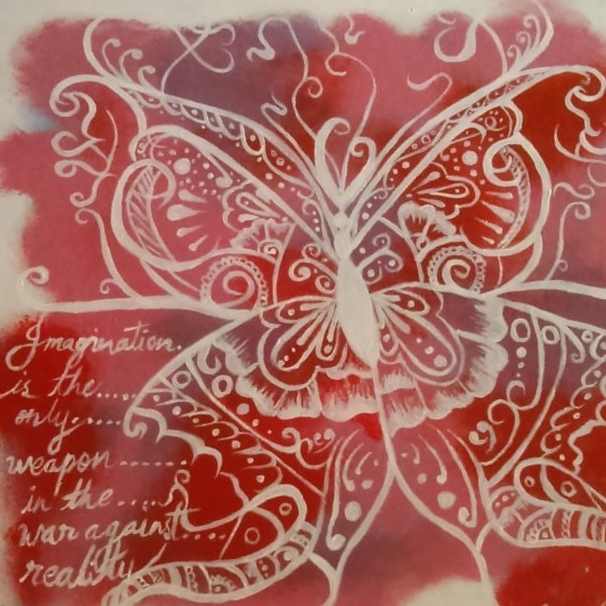 Imagination.
is the.....
only.....
weapon......
in the.....
war against....
reality